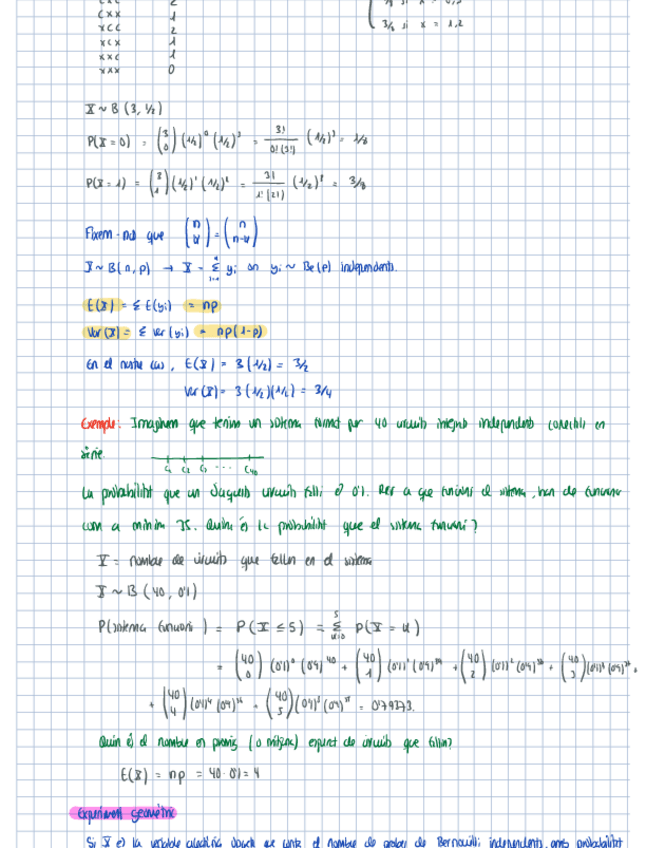 CXX 1
XCC 2
XCX 1
XXC 1
XXX 0
3/8 si x = 1,2
X ~ B (3, 1/2)
P(X=0) = (3 0) (1/2)⁰ (1/2)³ = 3! / 0!(3!) (1/2)³ = 1/8
P(X=1) = (3 1) (1/2)¹ (1/2)² = 3! / 1!(2!) (1/2)³ = 3/8
Fixem-nos que (n k) = (n n-k)
X ~ B(n, p) → X = Σ yi on yi ~ Be(p) independents.
E(X) = Σ E(yi) = np
Var(X) = Σ Var(yi) = np(1-p)
En el nostre cas, E(X) = 3(1/2) = 3/2
Var(X) = 3(1/2)(1/2) = 3/4
Exemple: Imaginem que tenim un sistema format per 40 circuits integrats independents connectats en
sèrie.
C1 C2 C3 ... C40
La probabilitat que un d'aquests circuits falli és 0'1. Per a que funcioni el sistema, han de funcionar
com a mínim 35. Quina és la probabilitat que el sistema funcioni?
X = nombre de circuits que fallen en el sistema
X ~ B (40, 0'1)
P(sistema funcioni) = P(X ≤ 5) = Σ P(X = k)
= (40 0) (0'1)⁰ (0'9)⁴⁰ + (40 1) (0'1)¹ (0'9)³⁹ + (40 2) (0'1)² (0'9)³⁸ + (40 3) (0'1)³ (0'9)³⁷ +
+ (40 4) (0'1)⁴ (0'9)³⁶ + (40 5) (0'1)⁵ (0'9)³⁵ = 0'79373.
Quin és el nombre en promig (o mitjana) esperat de circuits que fallin?
E(X) = np = 40 · 0'1 = 4
Experiment geomètric
Si X és la variable aleatòria discreta que compta el nombre de proves de Bernoulli independents amb probabilitat